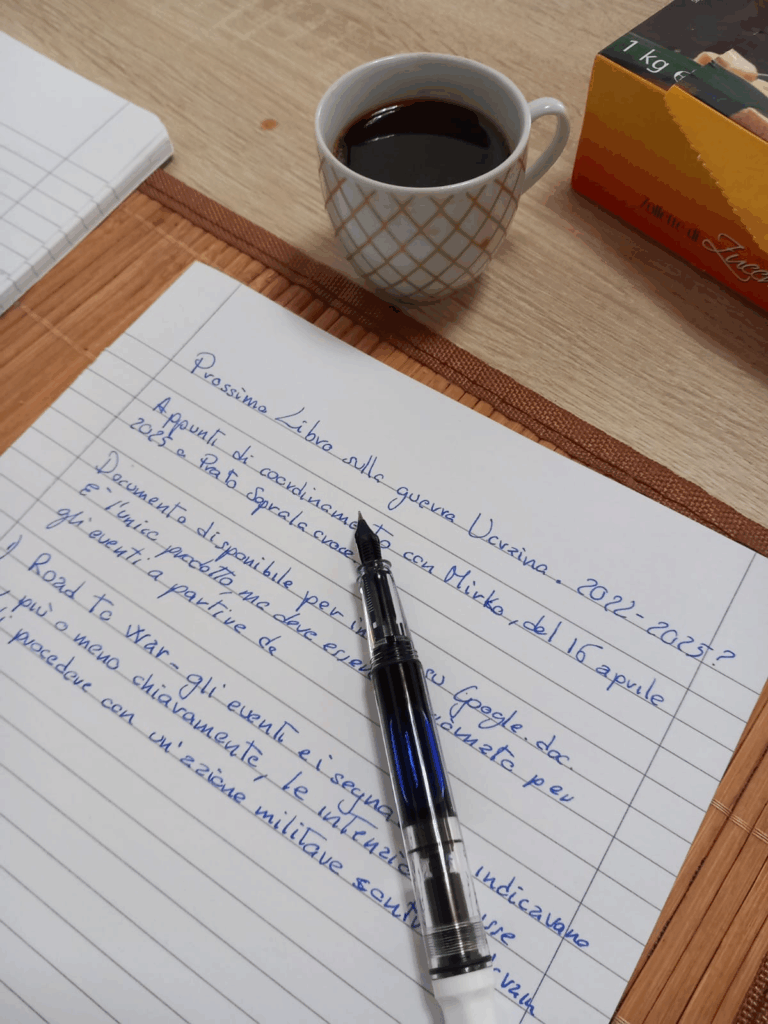 1 kg e
Zollette di
Zucch
Prossimo Libro sulla guerra Ucraina. 2022-2025?
Appunti di coordinamento con Mirko, del 16 aprile
2025 a Prato Sopralacroce.
Documento disponibile per in su Google.doc.
E' l'unico prodotto, ma deve esser per
gli eventi a partire da
1) Road to war - gli eventi e i segna indicavano
più o meno chiaramente, le intenzio sse
procedere con un'azione militare contr